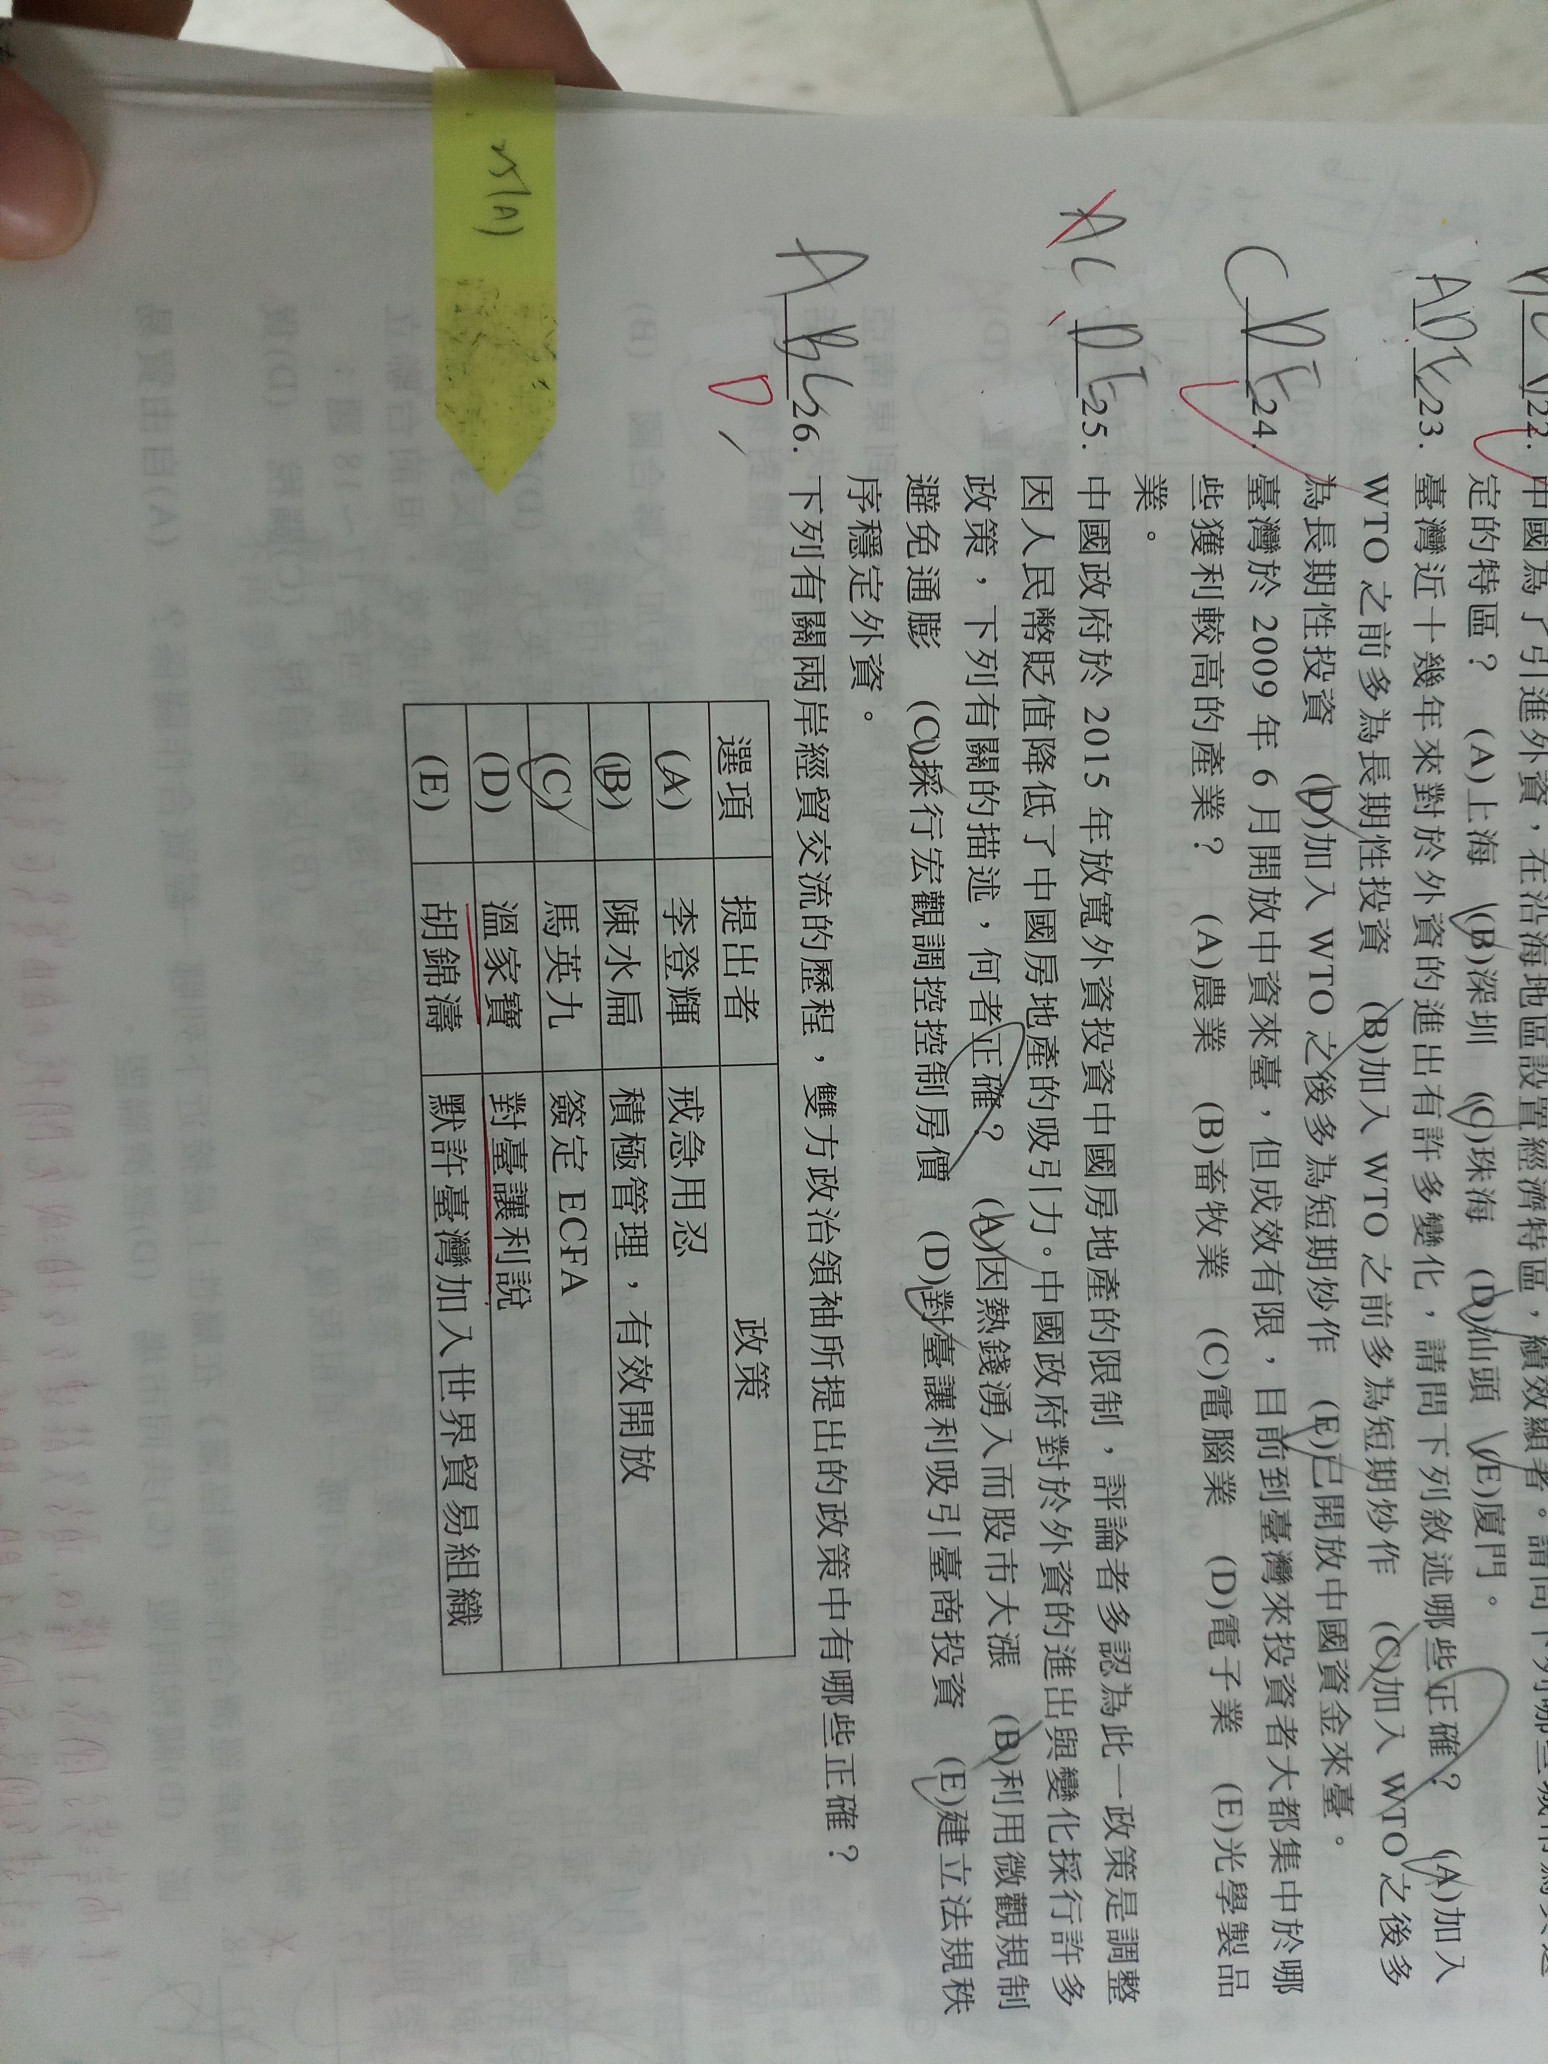 22. 中國為了引進外資，在沿海地區設置經濟特區，績效顯著。請問下列哪些城市為
定的特區？ (A)上海 (B)深圳 (C)珠海 (D)汕頭 (E)廈門。
ADE 23. 臺灣近十幾年來對於外資的進出有許多變化，請問下列敘述哪些正確？ (A)加入
WTO 之前多為長期性投資 (B)加入 WTO 之前多為短期炒作 (C)加入 WTO 之後多
為長期性投資 (D)加入 WTO 之後多為短期炒作 (E)已開放中國資金來臺。
CDE 24. 臺灣於 2009 年 6 月開放中資來臺，但成效有限，目前到臺灣來投資者大都集中於哪
些獲利較高的產業？ (A)農業 (B)畜牧業 (C)電腦業 (D)電子業 (E)光學製品
業。
ACDE 25. 中國政府於 2015 年放寬外資投資中國房地產的限制，評論者多認為此一政策是調整
因人民幣貶值降低了中國房地產的吸引力。中國政府對於外資的進出與變化採行許多
政策，下列有關的描述，何者正確？ (A)因熱錢湧入而股市大漲 (B)利用微觀規制
避免通膨 (C)採行宏觀調控控制房價 (D)對臺讓利吸引臺商投資 (E)建立法規秩
序穩定外資。
ABC 26. 下列有關兩岸經貿交流的歷程，雙方政治領袖所提出的政策中有哪些正確？
D
選項 提出者 政策
(A) 李登輝 戒急用忍
(B) 陳水扁 積極管理，有效開放
(C) 馬英九 簽定 ECFA
(D) 溫家寶 對臺讓利說
(E) 胡錦濤 默許臺灣加入世界貿易組織
25(A)